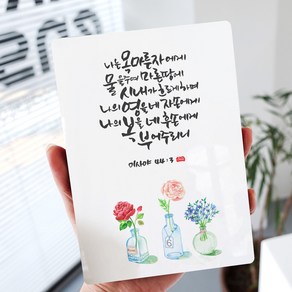 나는 목마른 자에게
물을 주며 마른 땅에
시내가 흐르게 하며
나의 영을 네 자손에게
나의 복을 네 후손에게
부어주리니
이사야 44:3